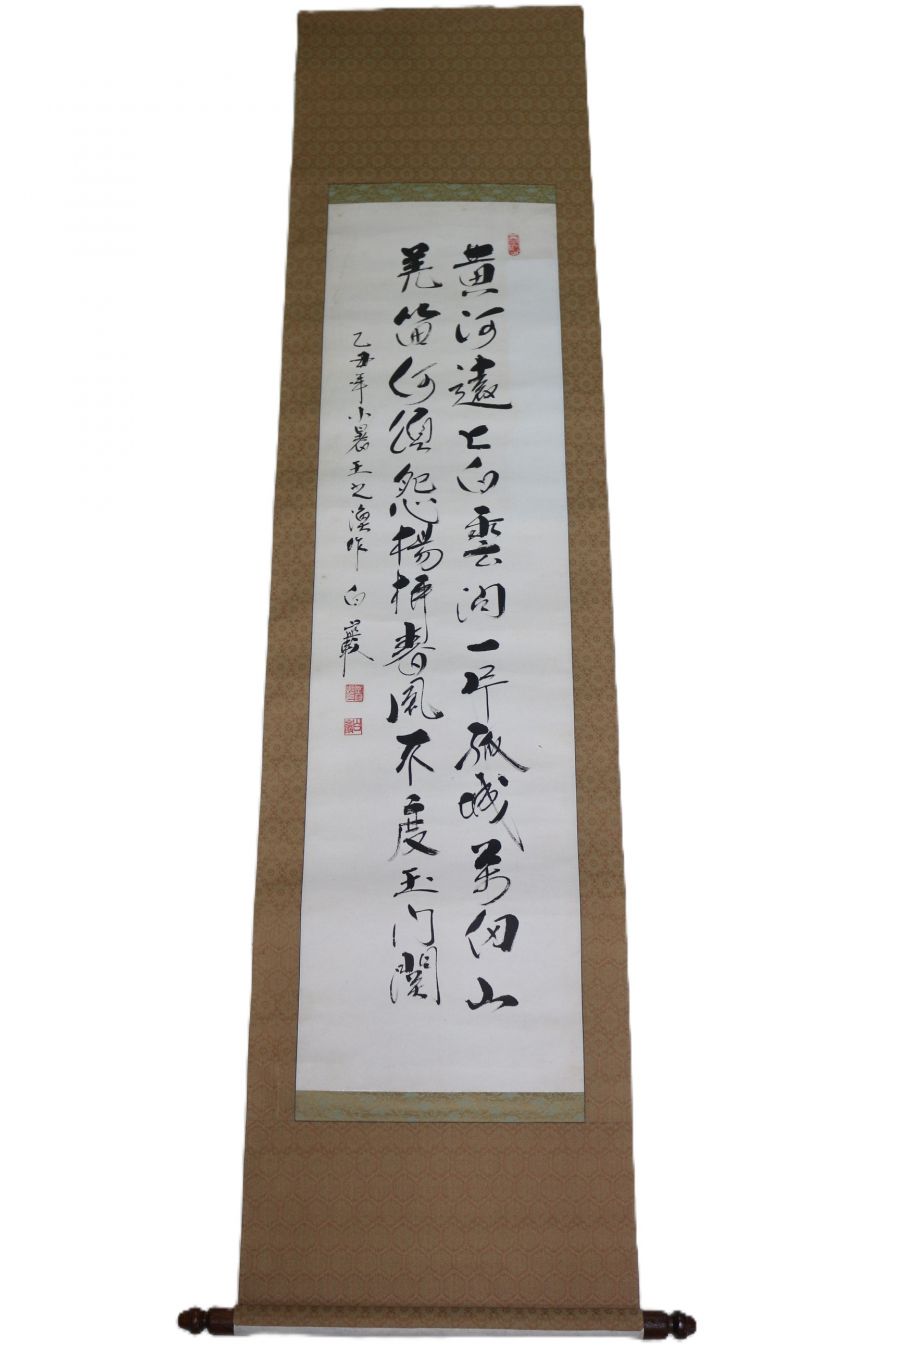 黄河遠上白雲間一片孤城萬仞山
羌笛何須怨楊柳春風不度玉门關
乙丑年小暑王之渙作 白巖